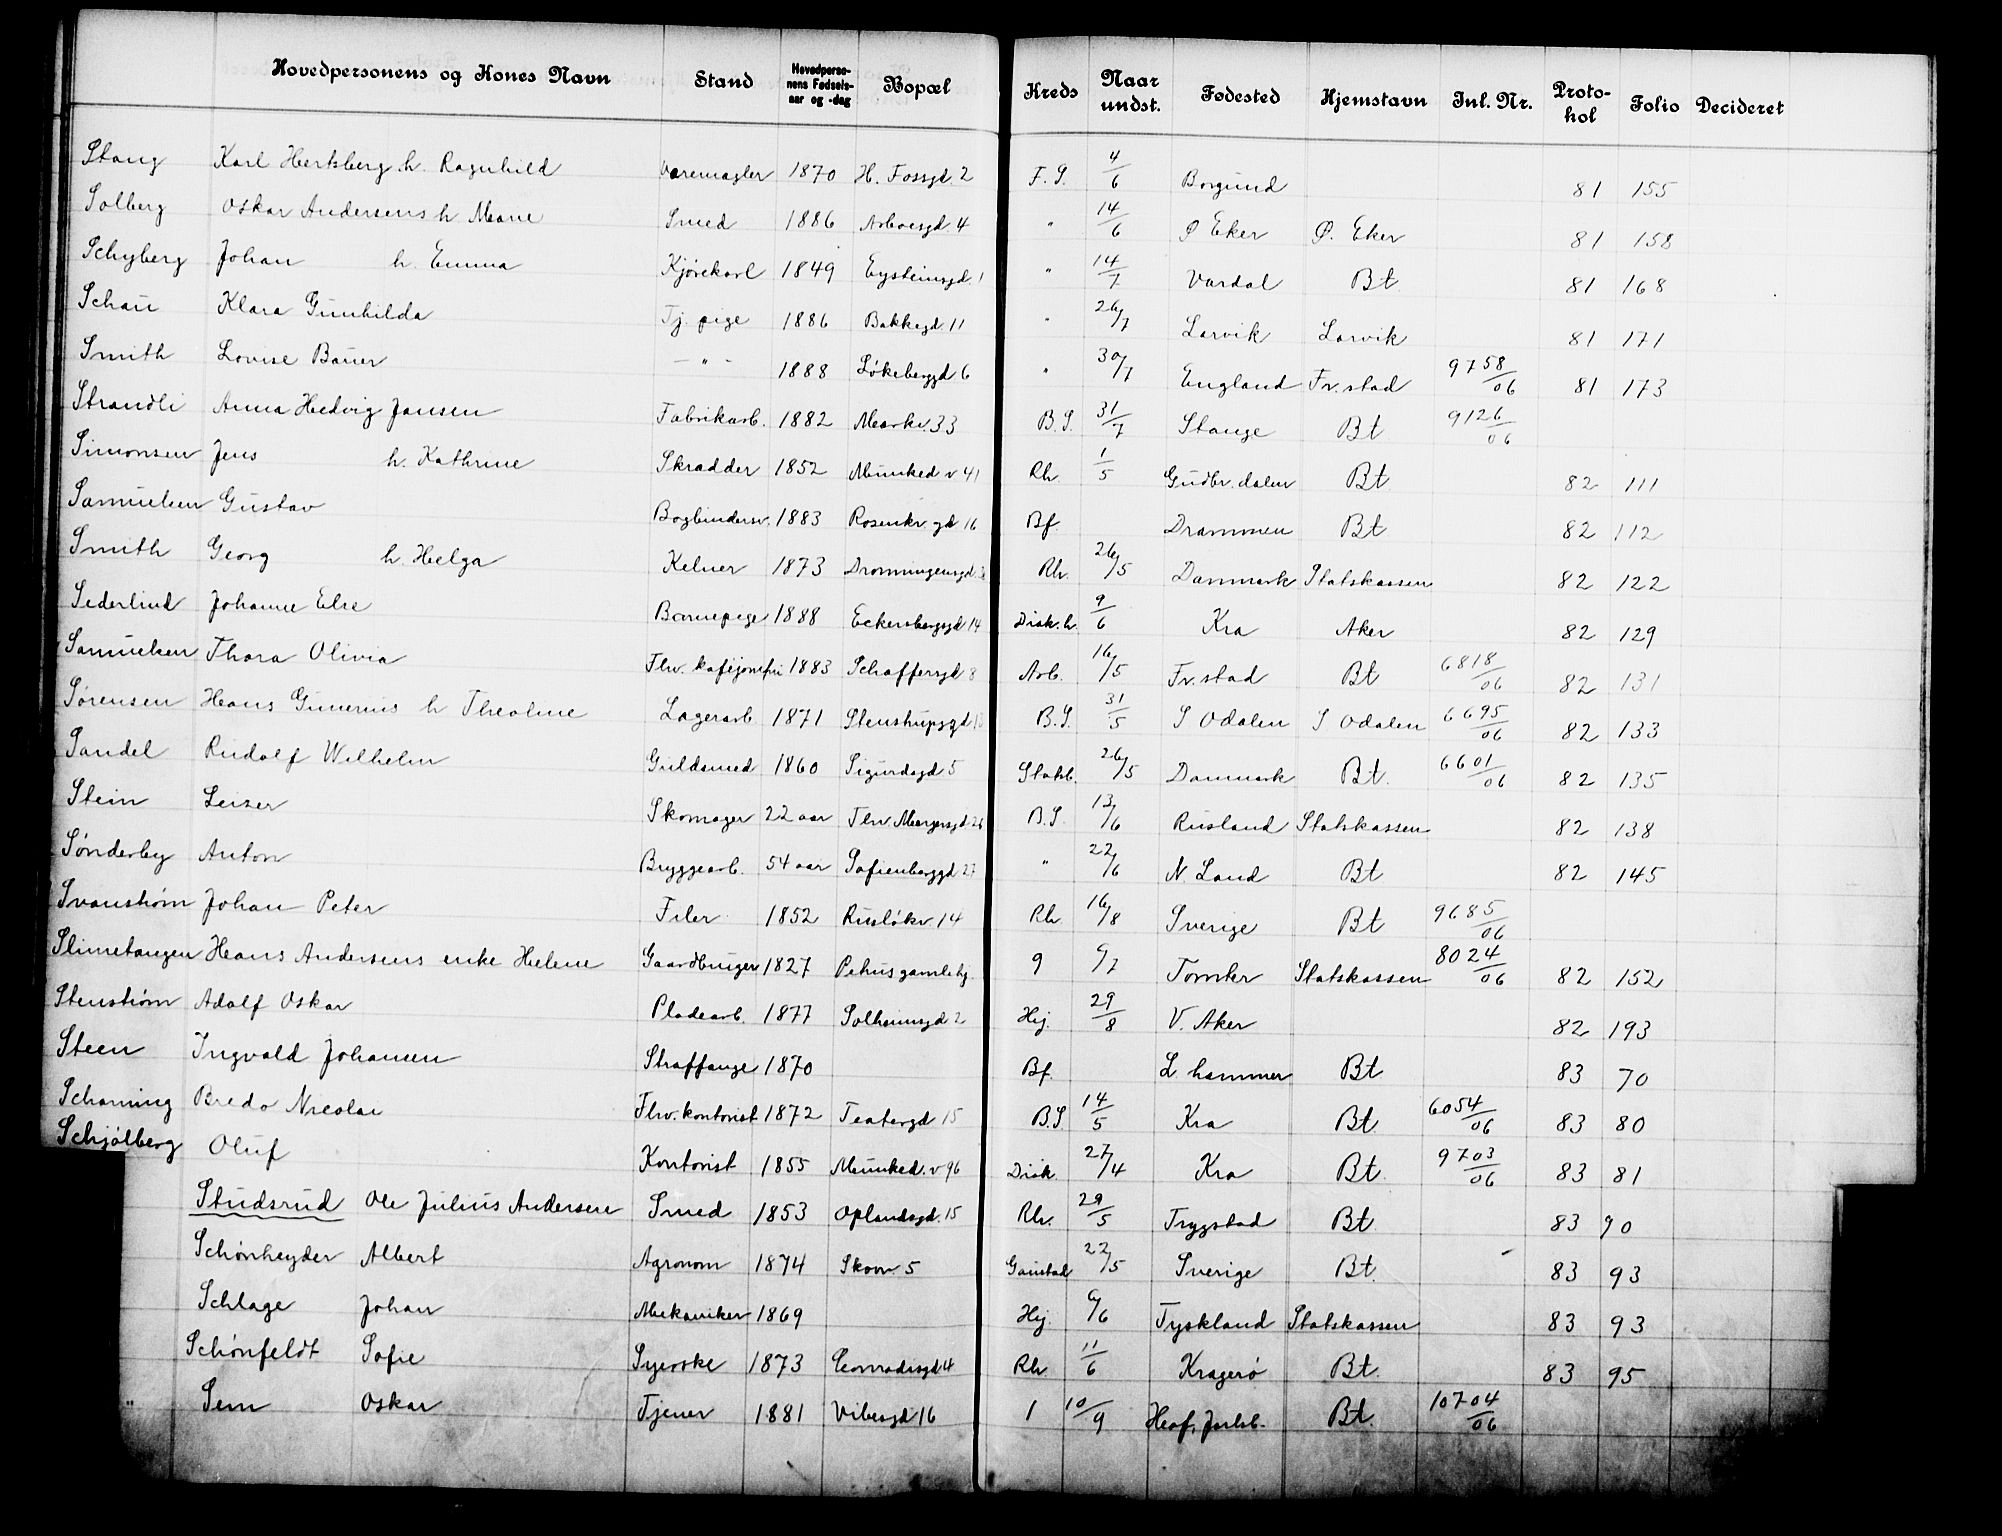 Hovedpersonens og Kones Navn Stand Hovedperso-nens Fødsels-aar og -dag Bopæl Kreds Naar undst. Fødested Hjemstavn Jnl. Nr. Proto-kol Folio Decideret
Stang Karl Hertsberg h. Ragnhild Varemægler 1870 H. Fossgd. 2 F. S. 4/6 Borgund 81 155
Solberg Oskar Andersens h Marie Smed 1886 Arboesgd. 4 " 14/6 Ø Eker Ø. Eker 81 158
Schyberg Johan h. Emma Kjørekarl 1849 Eysteinsgd. 1 " 14/7 Vardal Bt 81 168
Schau Klara Gunhilda Tj. pige 1886 Bakkegd. 11 " 26/7 Larvik Larvik 81 171
Smith Lovise Bauer — " - 1888 Løkeberggd 6 " 30/7 England Fr.stad 9758/06 81 173
Strandli Anna Hedvig Jansen Fabrikarb. 1882 Markv. 33 B. S. 31/7 Stange Bt 9126/06
Simonsen Jens h. Kathrine Skrædder 1852 Munked v 41 Rh. 1/5 Gudbr. dalen Bt 82 111
Samuelsen Gustav Bogbindersv. 1883 Rosenkr. gd 16 Bf. Drammen Bt 82 112
Smith Georg h. Helga Kelner 1873 Dronningensgd. Rh. 26/5 Danmark Statskassen 82 122
Sederlind Johanne Else Barnepige 1888 Eckersbergsgd 14 Diak. h. 9/6 Kra Aker 82 129
Samuelsen Thora Olivia Fhv. kafejomfru 1883 Schaffersgd 8 Arb. 16/5 Fr. stad Bt 6818/06 82 131
Sørensen Hans Gunerius h Theoline Lagerarb. 1871 Stenstrupsgd. 13 B. S. 31/5 S Odalen S Odalen 6695/06 82 133
Sandel Rudolf Wilhelm Guldsmed 1860 Sigurdsgd 5 Stokb. 26/5 Danmark Bt. 6601/06 82 135
Stein Leiser Skomager 22 aar Fhv Maryersgd 26 B. S. 13/6 Rusland Statskassen 82 138
Sønderby Anton Bryggearb. 54 aar Sofienberggd 27 " 22/6 N. Land Bt 82 145
Svanstrøm Johan Peter Filer 1852 Rusløkv. 14 Rh 16/8 Sverige Bt 9685/06
Slimetangen Hans Andersens enke Helene Gaardbruger 1827 Pehus gamlehj. 9 6/7 Tomter Statskassen 8024/06 82 152
Stenstrøm Adolf Oskar Pladearb. 1877 Solheimsgd 2 Hj. 29/8 V. Aker 82 193
Steen Ingvald Johansen Straffange 1870 Bf. L. hammer Bt 83 70
Scharning Bredo Nicolai Fhv. kontorist 1872 Teatergd 15 B. S. 14/5 Kra Bt. 6054/06 83 80
Schjølberg Oluf Kontorist 1855 Munked. v 96 Diak. 27/4 Kra Bt. 9703/06 83 81
Studsrud Ole Julius Andersen Smed 1853 Oplandsgd. 15 Rh. 29/5 Trygstad Bt. 83 90
Schønheyder Albert Agronom 1874 Skovv. 5 Gaustad 22/5 Sverige Bt. 83 93
Schlage Johan Mekaniker 1869 Hj. 6/6 Tyskland Statskassen 83 93
Schønfeldt Sofie Syerske 1873 Conradisgd 4 Rh. 11/6 Kragerø Bt. 83 95
" Sem Oskar Tjener 1881 Vibesgd 16 1 10/9 Hof, Jarlsb. Bt. 10704/06